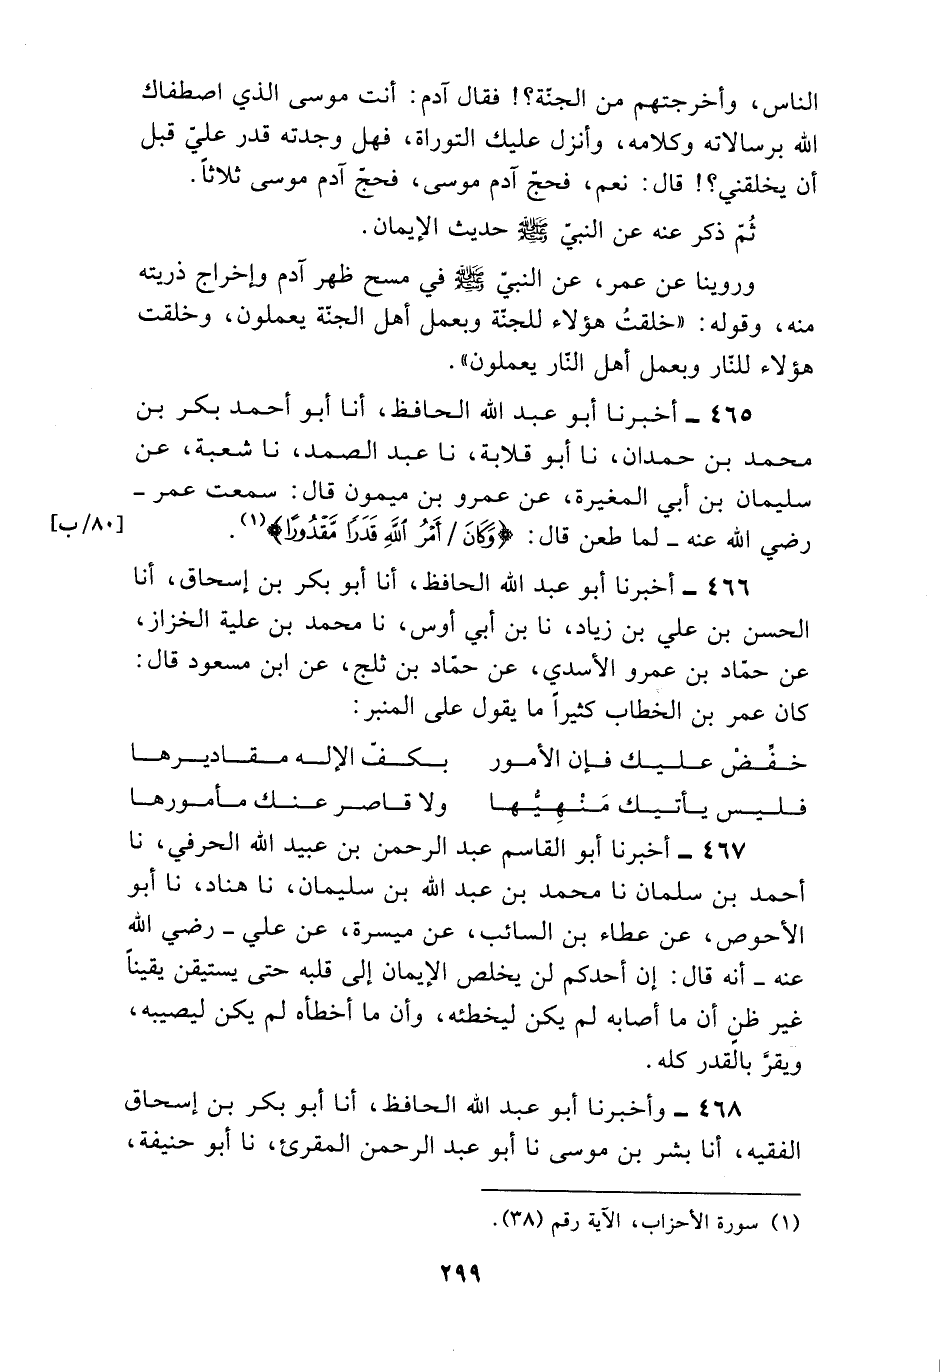 الناس، وأخرجتهم من الجنّة؟! فقال آدم: أنت موسى الذي اصطفاك
الله برسالاته وكلامه، وأنزل عليك التوراة، فهل وجدته قدر عليّ قبل
أن يخلقني؟! قال: نعم، فحجّ آدم موسى، فحجّ آدم موسى ثلاثاً.
ثُمّ ذكر عنه عن النبيّ ﷺ حديث الإيمان.
وروينا عن عمر، عن النبيّ ﷺ في مسح ظهر آدم وإخراج ذريته
منه، وقوله: «خلقتُ هؤلاء للجنّة وبعمل أهل الجنّة يعملون، وخلقت
هؤلاء للنّار وبعمل أهل النّار يعملون».
٤٦٥ ـ أخبرنا أبو عبد الله الحافظ، أنا أبو أحمد بكر بن
محمد بن حمدان، نا أبو قلابة، نا عبد الصمد، نا شعبة، عن
سليمان بن أبي المغيرة، عن عمرو بن ميمون قال: سمعت عمر ـ
رضي الله عنه ـ لما طعن قال: ﴿وَكَانَ / أَمْرُ ٱللَّهِ قَدَرًا مَّقْدُورًا﴾(١). [٨٠/ب]
٤٦٦ ـ أخبرنا أبو عبد الله الحافظ، أنا أبو بكر بن إسحاق، أنا
الحسن بن علي بن زياد، نا بن أبي أوس، نا محمد بن علية الخزاز،
عن حمّاد بن عمرو الأسدي، عن حمّاد بن ثلج، عن ابن مسعود قال:
كان عمر بن الخطاب كثيراً ما يقول على المنبر:
خفِّضْ عليك فإن الأمور بكفّ الإله مقاديرها
فليس يأتيك مَنْهِيُّها ولا قاصر عنك مأمورها
٤٦٧ ـ أخبرنا أبو القاسم عبد الرحمن بن عبيد الله الحرفي، نا
أحمد بن سلمان نا محمد بن عبد الله بن سليمان، نا هناد، نا أبو
الأحوص، عن عطاء بن السائب، عن ميسرة، عن علي ـ رضي الله
عنه ـ أنه قال: إن أحدكم لن يخلص الإيمان إلى قلبه حتى يستيقن يقيناً
غير ظنٍ أن ما أصابه لم يكن ليخطئه، وأن ما أخطأه لم يكن ليصيبه،
ويقرَّ بالقدر كله.
٤٦٨ ـ وأخبرنا أبو عبد الله الحافظ، أنا أبو بكر بن إسحاق
الفقيه، أنا بشر بن موسى نا أبو عبد الرحمن المقرئ، نا أبو حنيفة،
(١) سورة الأحزاب، الآية رقم (٣٨).
٢٩٩